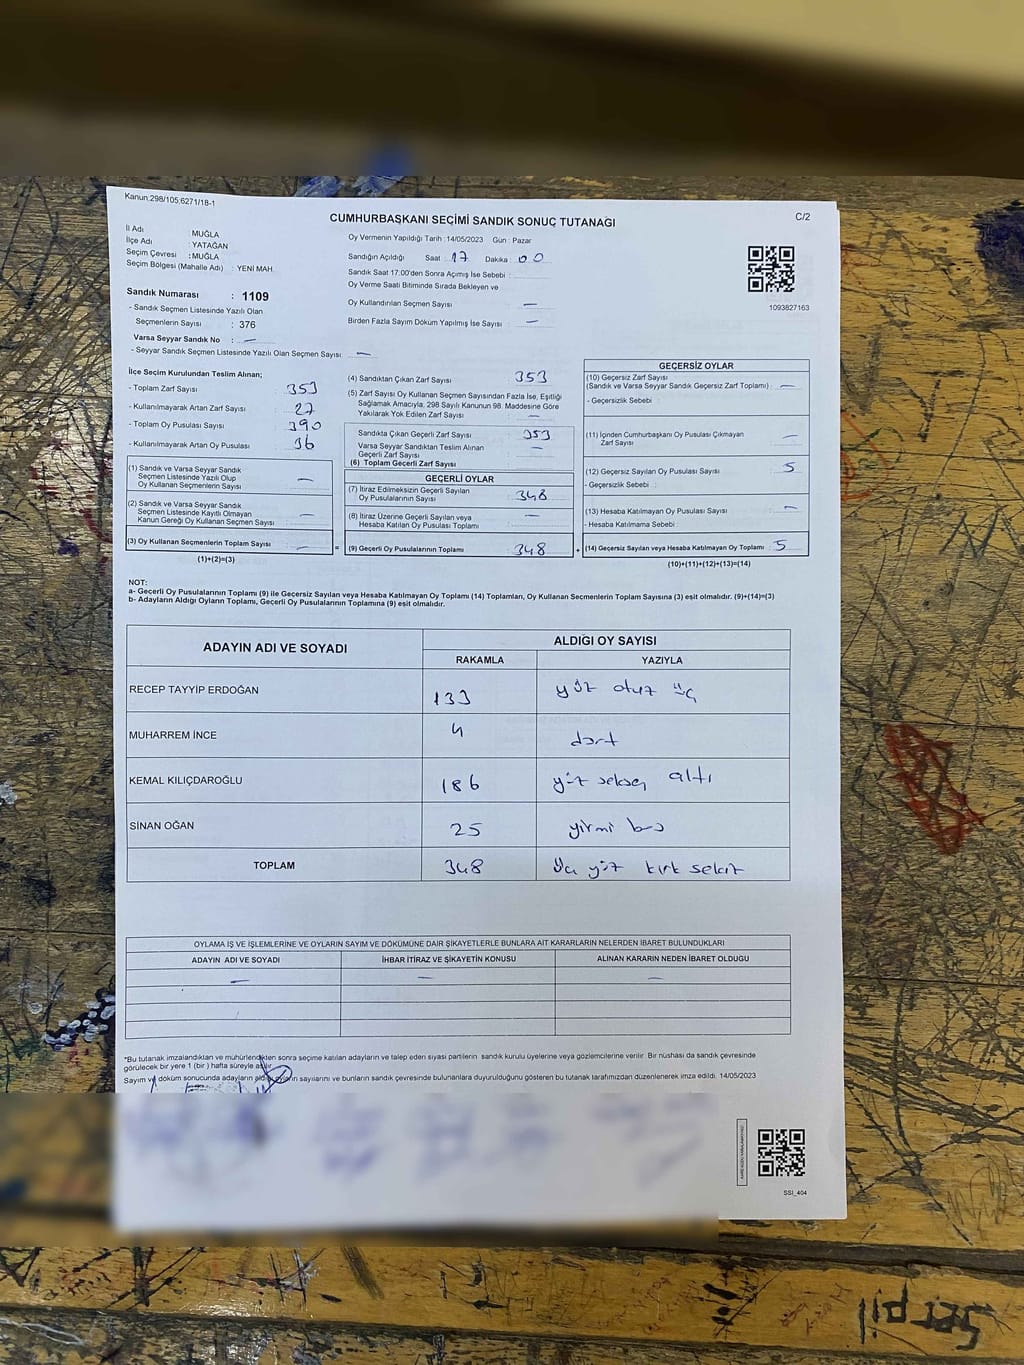 Kanun:298/105;6271/18-1
C/2
CUMHURBAŞKANI SEÇİMİ SANDIK SONUÇ TUTANAĞI
İl Adı : MUĞLA
İlçe Adı : YATAĞAN
Seçim Çevresi : MUĞLA
Seçim Bölgesi (Mahalle Adı) : YENİ MAH.
Oy Vermenin Yapıldığı Tarih : 14/05/2023 Gün : Pazar
Sandığın Açıldığı Saat : 17 Dakika : 00
Sandık Saat 17:00'den Sonra Açımış İse Sebebi :
Oy Verme Saati Bitiminde Sırada Bekleyen ve
Oy Kullandırılan Seçmen Sayısı : —
Birden Fazla Sayım Döküm Yapılmış İse Sayısı : —
1093827163
Sandık Numarası : 1109
- Sandık Seçmen Listesinde Yazılı Olan
Seçmenlerin Sayısı : 376
Varsa Seyyar Sandık No : —
- Seyyar Sandık Seçmen Listesinde Yazılı Olan Seçmen Sayısı : —
İlçe Seçim Kurulundan Teslim Alınan;
- Toplam Zarf Sayısı : 353
- Kullanılmayarak Artan Zarf Sayısı : 27
- Toplam Oy Pusulası Sayısı : 390
- Kullanılmayarak Artan Oy Pusulası : 36
(1) Sandık ve Varsa Seyyar Sandık
Seçmen Listesinde Yazılı Olup
Oy Kullanan Seçmenlerin Sayısı : —
(2) Sandık ve Varsa Seyyar Sandık
Seçmen Listesinde Kayıtlı Olmayan
Kanun Gereği Oy Kullanan Seçmen Sayısı : —
(3) Oy Kullanan Seçmenlerin Toplam Sayısı : —
(1)+(2)=(3)
(4) Sandıktan Çıkan Zarf Sayısı : 353
(5) Zarf Sayısı Oy Kullanan Seçmen Sayısından Fazla İse, Eşitliği
Sağlamak Amacıyla, 298 Sayılı Kanunun 98. Maddesine Göre
Yakılarak Yok Edilen Zarf Sayısı : —
Sandıkta Çıkan Geçerli Zarf Sayısı : 353
Varsa Seyyar Sandıktan Teslim Alınan
Geçerli Zarf Sayısı : —
(6) Toplam Geçerli Zarf Sayısı
GEÇERLİ OYLAR
(7) İtiraz Edilmeksizin Geçerli Sayılan
Oy Pusulalarının Sayısı : 348
(8) İtiraz Üzerine Geçerli Sayılan veya
Hesaba Katılan Oy Pusulası Toplamı : —
= (9) Geçerli Oy Pusulalarının Toplamı : 348
GEÇERSİZ OYLAR
(10) Geçersiz Zarf Sayısı
(Sandık ve Varsa Seyyar Sandık Geçersiz Zarf Toplamı) : —
- Geçersizlik Sebebi :
(11) İçinden Cumhurbaşkanı Oy Pusulası Çıkmayan
Zarf Sayısı : —
(12) Geçersiz Sayılan Oy Pusulası Sayısı : 5
- Geçersizlik Sebebi :
(13) Hesaba Katılmayan Oy Pusulası Sayısı : —
- Hesaba Katılmama Sebebi :
+ (14) Geçersiz Sayılan veya Hesaba Katılmayan Oy Toplamı : 5
(10)+(11)+(12)+(13)=(14)
NOT:
a- Geçerli Oy Pusulalarının Toplamı (9) ile Geçersiz Sayılan veya Hesaba Katılmayan Oy Toplamı (14) Toplamları, Oy Kullanan Seçmenlerin Toplam Sayısına (3) eşit olmalıdır. (9)+(14)=(3)
b- Adayların Aldığı Oyların Toplamı, Geçerli Oy Pusulalarının Toplamına (9) eşit olmalıdır.
ADAYIN ADI VE SOYADI ALDIĞI OY SAYISI
RAKAMLA YAZIYLA
RECEP TAYYİP ERDOĞAN 133 yüz otuz üç
MUHARREM İNCE 4 dört
KEMAL KILIÇDAROĞLU 186 yüz seksen altı
SİNAN OĞAN 25 yirmi beş
TOPLAM 348 Üç yüz kırk sekiz
OYLAMA İŞ VE İŞLEMLERİNE VE OYLARIN SAYIM VE DÖKÜMÜNE DAİR ŞİKAYETLERLE BUNLARA AİT KARARLARIN NELERDEN İBARET BULUNDUKLARI
ADAYIN ADI VE SOYADI İHBAR İTİRAZ VE ŞİKAYETİN KONUSU ALINAN KARARIN NEDEN İBARET OLDUĞU
— — —
*Bu tutanak imzalandıktan ve mühürlendikten sonra seçime katılan adayların ve talep eden siyasi partilerin sandık kurulu üyelerine veya gözlemcilerine verilir. Bir nüshası da sandık çevresinde
görülecek bir yere 1 (bir) hafta süreyle asılır.
Sayım ve döküm sonucunda adayların aldığı oyların sayılarını ve bunların sandık çevresinde bulunanlara duyurulduğunu gösteren bu tutanak tarafımızdan düzenlenerek imza edildi. 14/05/2023
SSI_404
Serpil